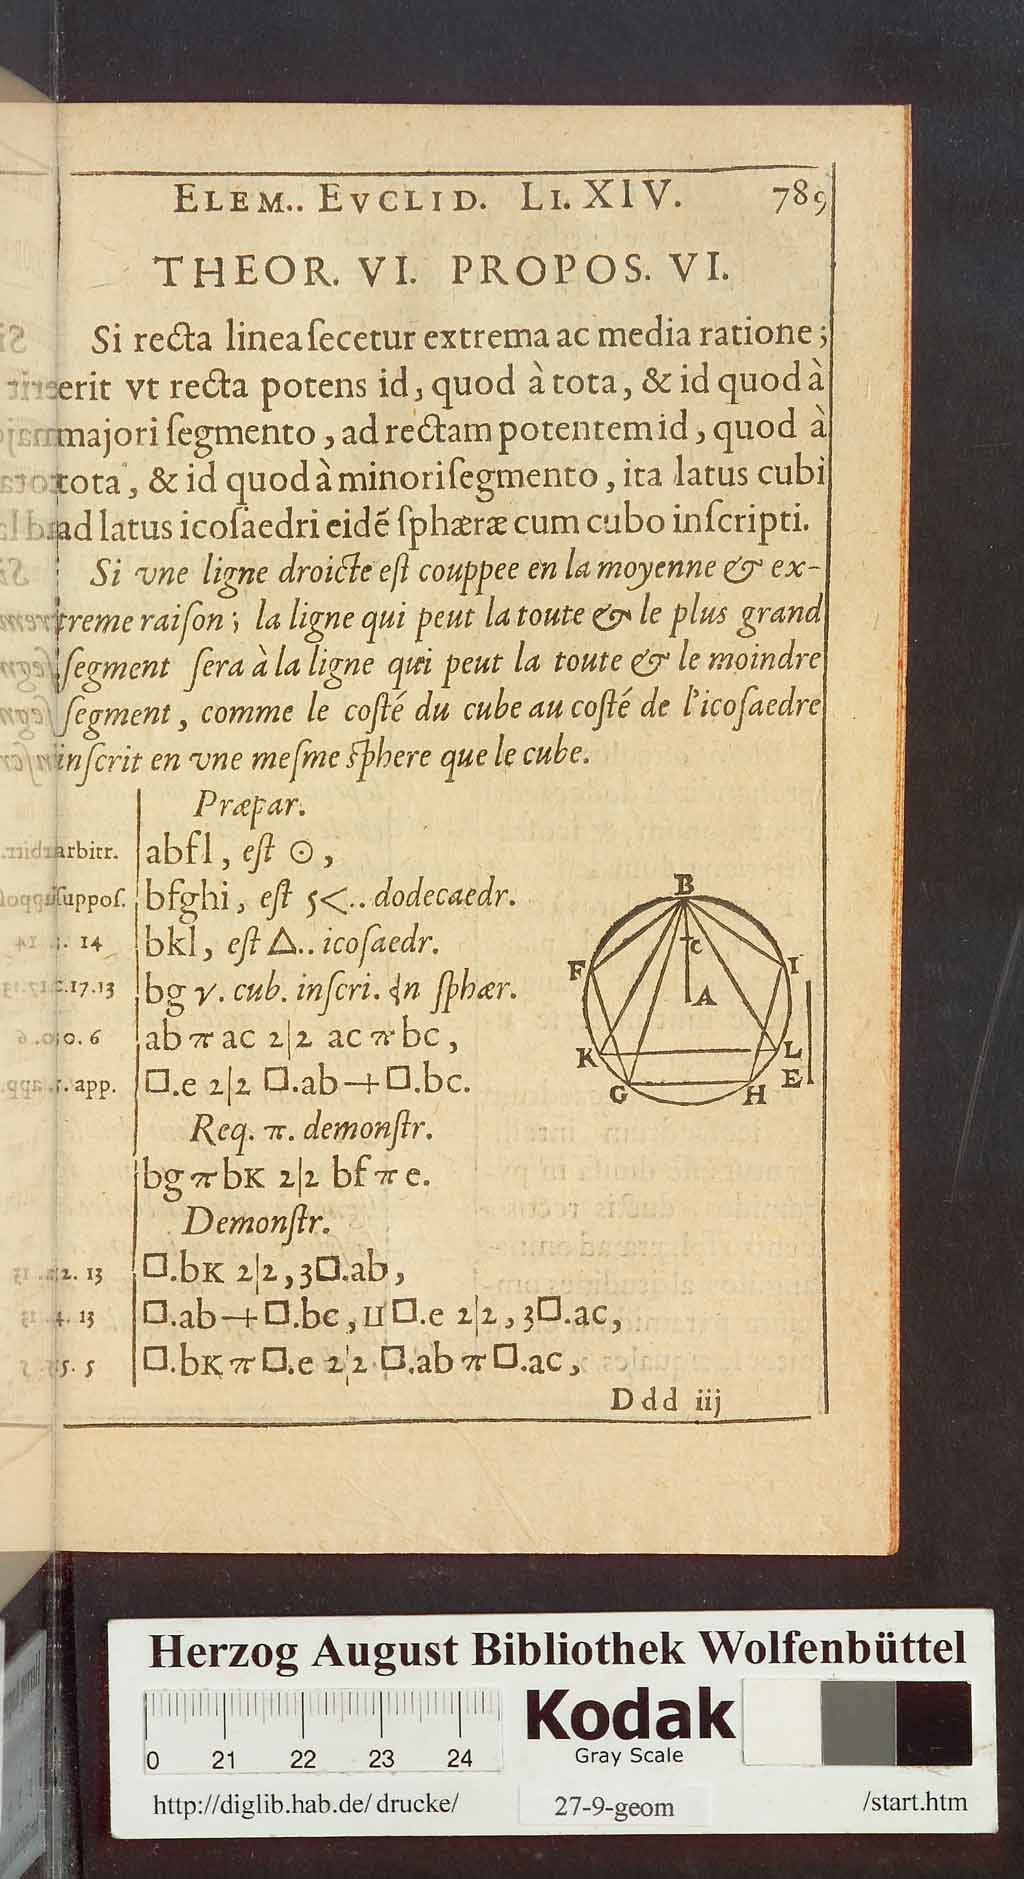 ELEM.. EVCLID. LI. XIV. 789
THEOR. VI. PROPOS. VI.
Si recta linea ſecetur extrema ac media ratione;
erit vt recta potens id, quod à tota, & id quod à
majori ſegmento, ad rectam potentem id, quod à
tota, & id quod à minori ſegmento, ita latus cubi
ad latus icoſaedri eidẽ ſphæræ cum cubo inſcripti.
Si vne ligne droicte eſt couppee en la moyenne & ex-
treme raiſon; la ligne qui peut la toute & le plus grand
ſegment ſera à la ligne qui peut la toute & le moindre
ſegment, comme le coſté du cube au coſté de l'icoſaedre
inſcrit en vne meſme ſphere que le cube.
Præpar.
arbitr. abfl, eſt ⊙,
ſuppoſ. bfghi, eſt 5<.. dodecaedr.
14 bkl, eſt △.. icoſaedr.
17.13 bg γ. cub. inſcri. in ſphær.
30. 6 ab π ac 2|2 ac π bc,
app. □.e 2|2 □.ab + □.bc.
Req. π. demonſtr.
bg π bK 2|2 bf π e.
Demonſtr.
12. 13 □.bK 2|2, 3□.ab,
4. 13 □.ab + □.bc, II □.e 2|2, 3□.ac,
15. 5 □.bK π □.e 2|2 □.ab π □.ac,
Ddd iij
B
C
F
I
A
K
L
E
G
H
Herzog August Bibliothek Wolfenbüttel
0 21 22 23 24
Kodak
Gray Scale
http://diglib.hab.de/drucke/ 27-9-geom /start.htm